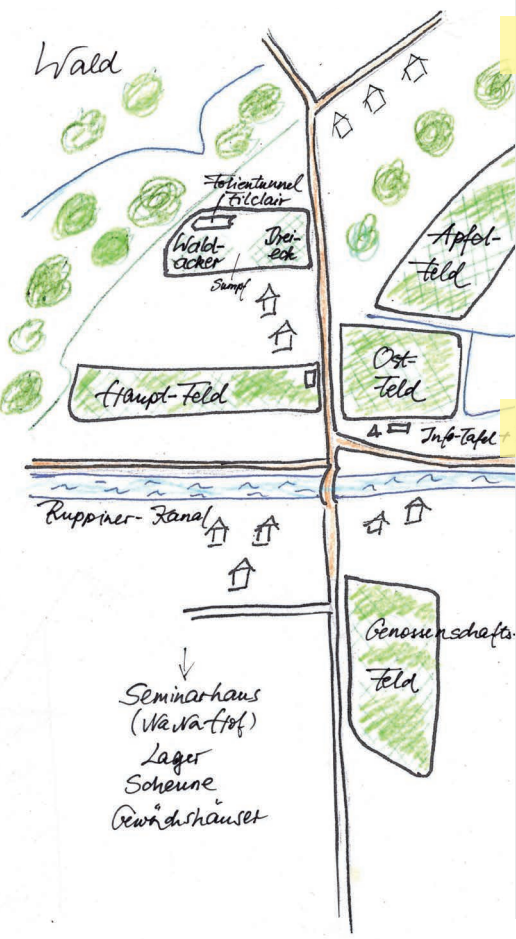 Wald
Folientunnel
Filclair
Wald-
acker
Drei-
eck
Sumpf
Apfel-
feld
Haupt-Feld
Ost-
feld
Info-Tafel +
Ruppiner-Kanal
Genossenschafts-
feld
Seminarhaus
(NaNa-Hof)
Lager
Scheune
Gewächshäuser